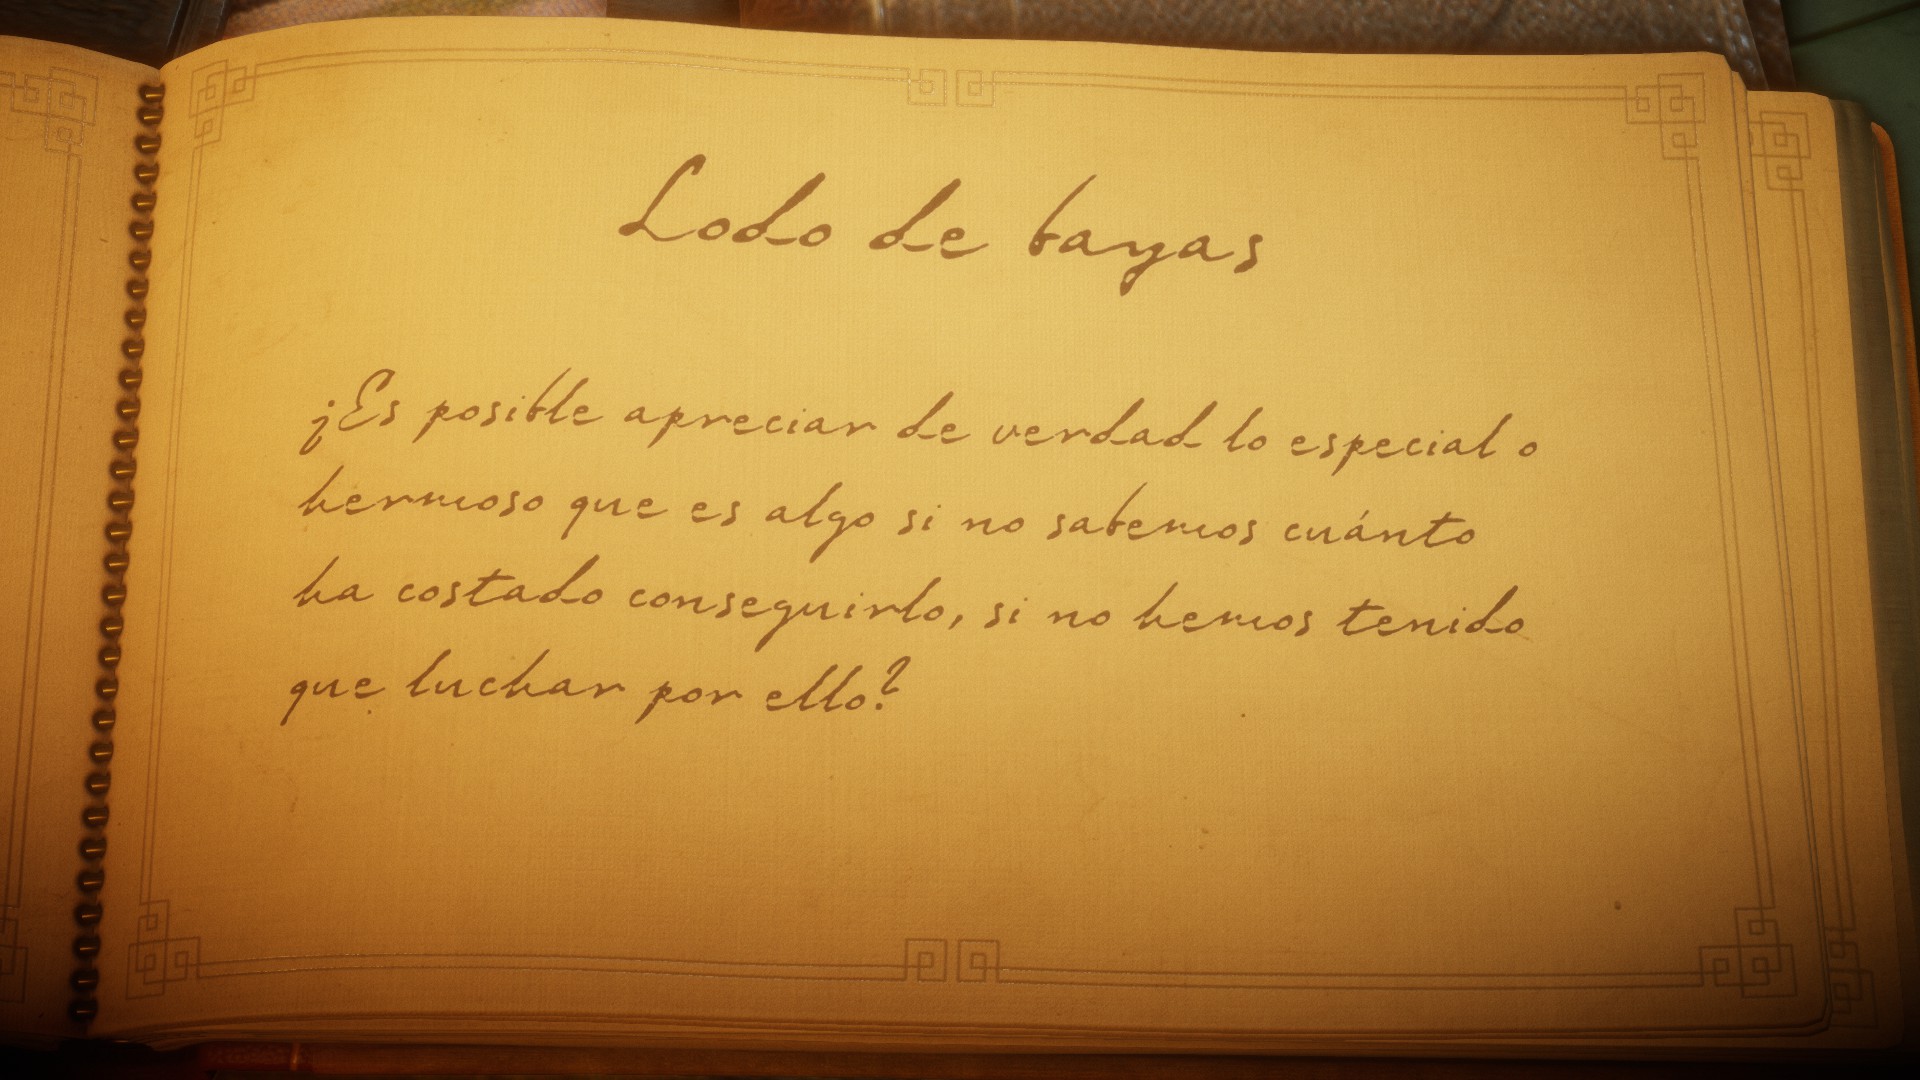 Lodo de bayas
¿Es posible apreciar de verdad lo especial o
hermoso que es algo si no sabemos cuánto
ha costado conseguirlo, si no hemos tenido
que luchar por ello?